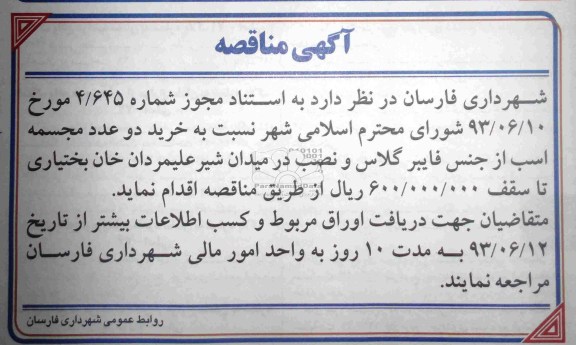 آگهی مناقصه
شهرداری فارسان در نظر دارد به استناد مجوز شماره ۴/۶۴۵ مورخ
۹۳/۰۶/۱۰ شورای محترم اسلامی شهر نسبت به خرید دو عدد مجسمه
اسب از جنس فایبر گلاس و نصب در میدان شیرعلیمردان خان بختیاری
تا سقف ۶۰۰/۰۰۰/۰۰۰ ریال از طریق مناقصه اقدام نماید.
متقاضیان جهت دریافت اوراق مربوط و کسب اطلاعات بیشتر از تاریخ
۹۳/۰۶/۱۲ به مدت ۱۰ روز به واحد امور مالی شهرداری فارسان
مراجعه نمایند.
روابط عمومی شهرداری فارسان